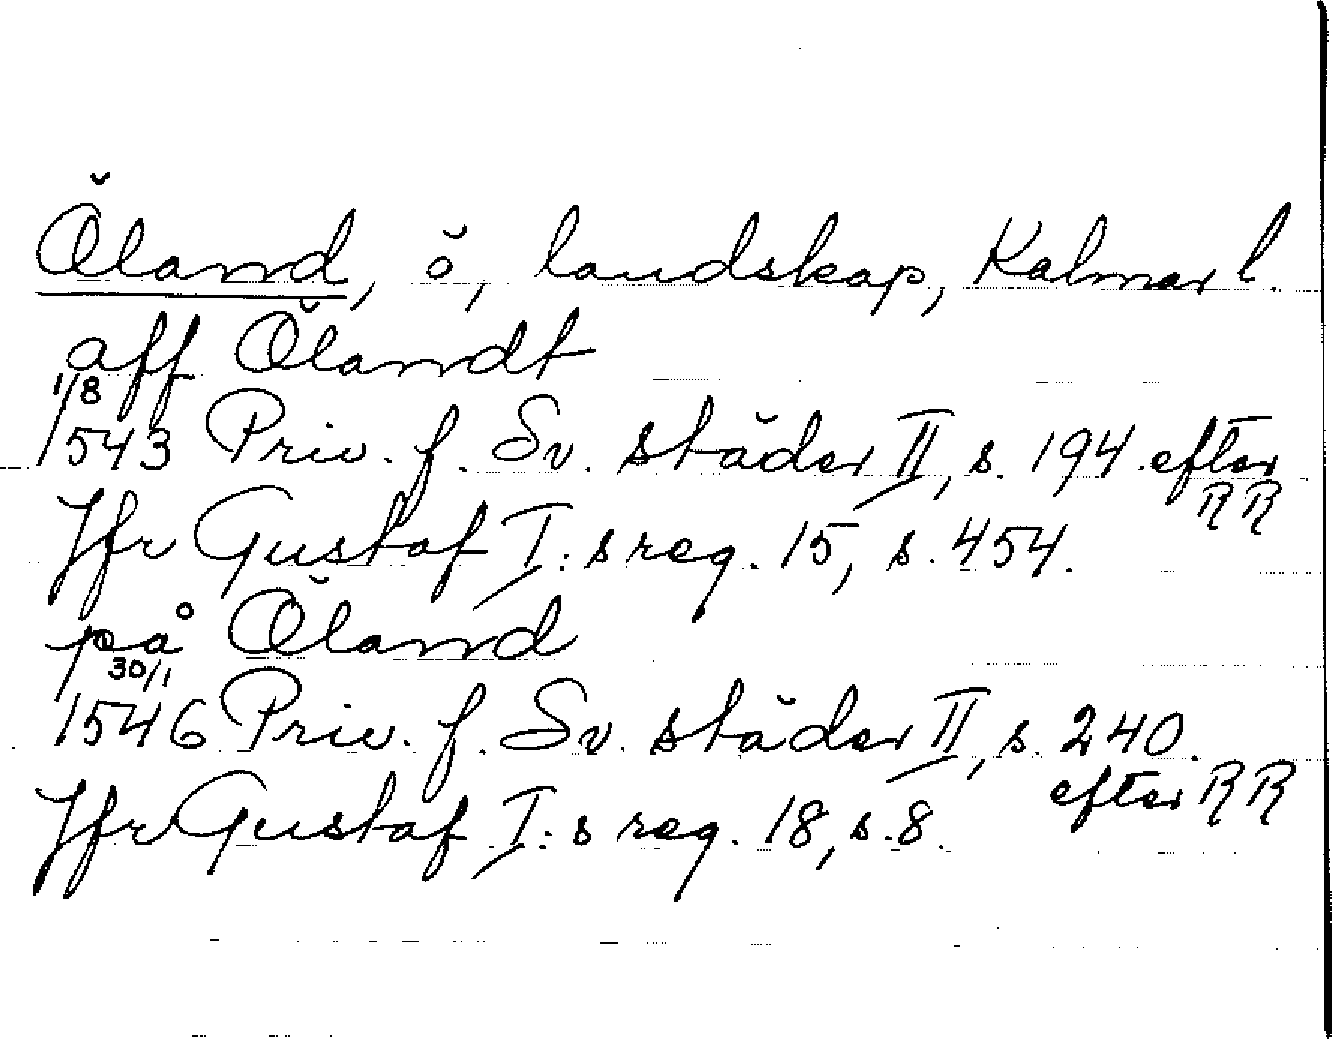 Öland, ö, landskap, Kalmar l.
aff Ölandt
1/8
1543 Priv. f. Sv. städer II, s. 194 efter RR
Jfr Gustaf I:s reg. 15, s. 454.
på Öland
30/1
1546 Priv. f. Sv. städer II, s. 240.
efter RR
Jfr Gustaf I:s reg. 18, s. 8.